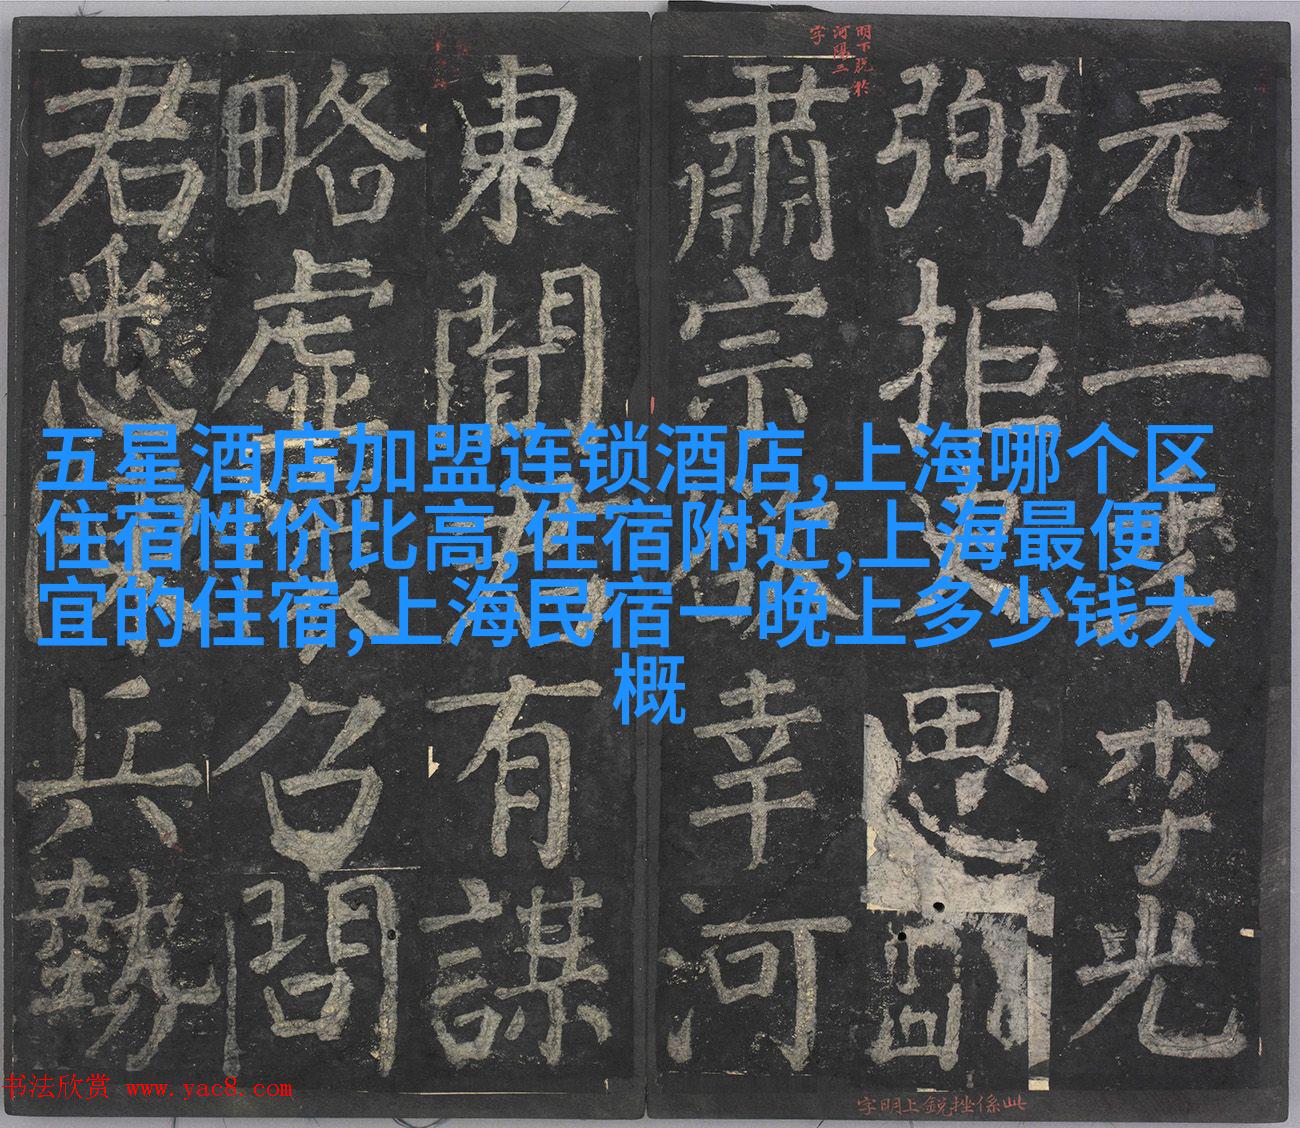 五星酒店加盟连锁酒店,上海哪个区
住宿性价比高,住宿附近,上海最便
宜的住宿,上海民宿一晚上多少钱大
概
明下脱於
河陽二
字
元二年李光
弼拒史思
肅宗幸河
東聞君有謀
略虛懷召問
君悉陳兵勢
此係挫銳上明字
书法欣赏 www.yac8.com